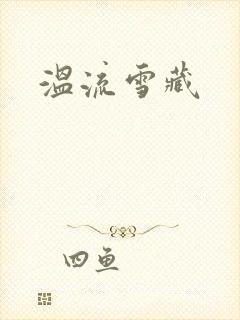 温流雪藏
四鱼